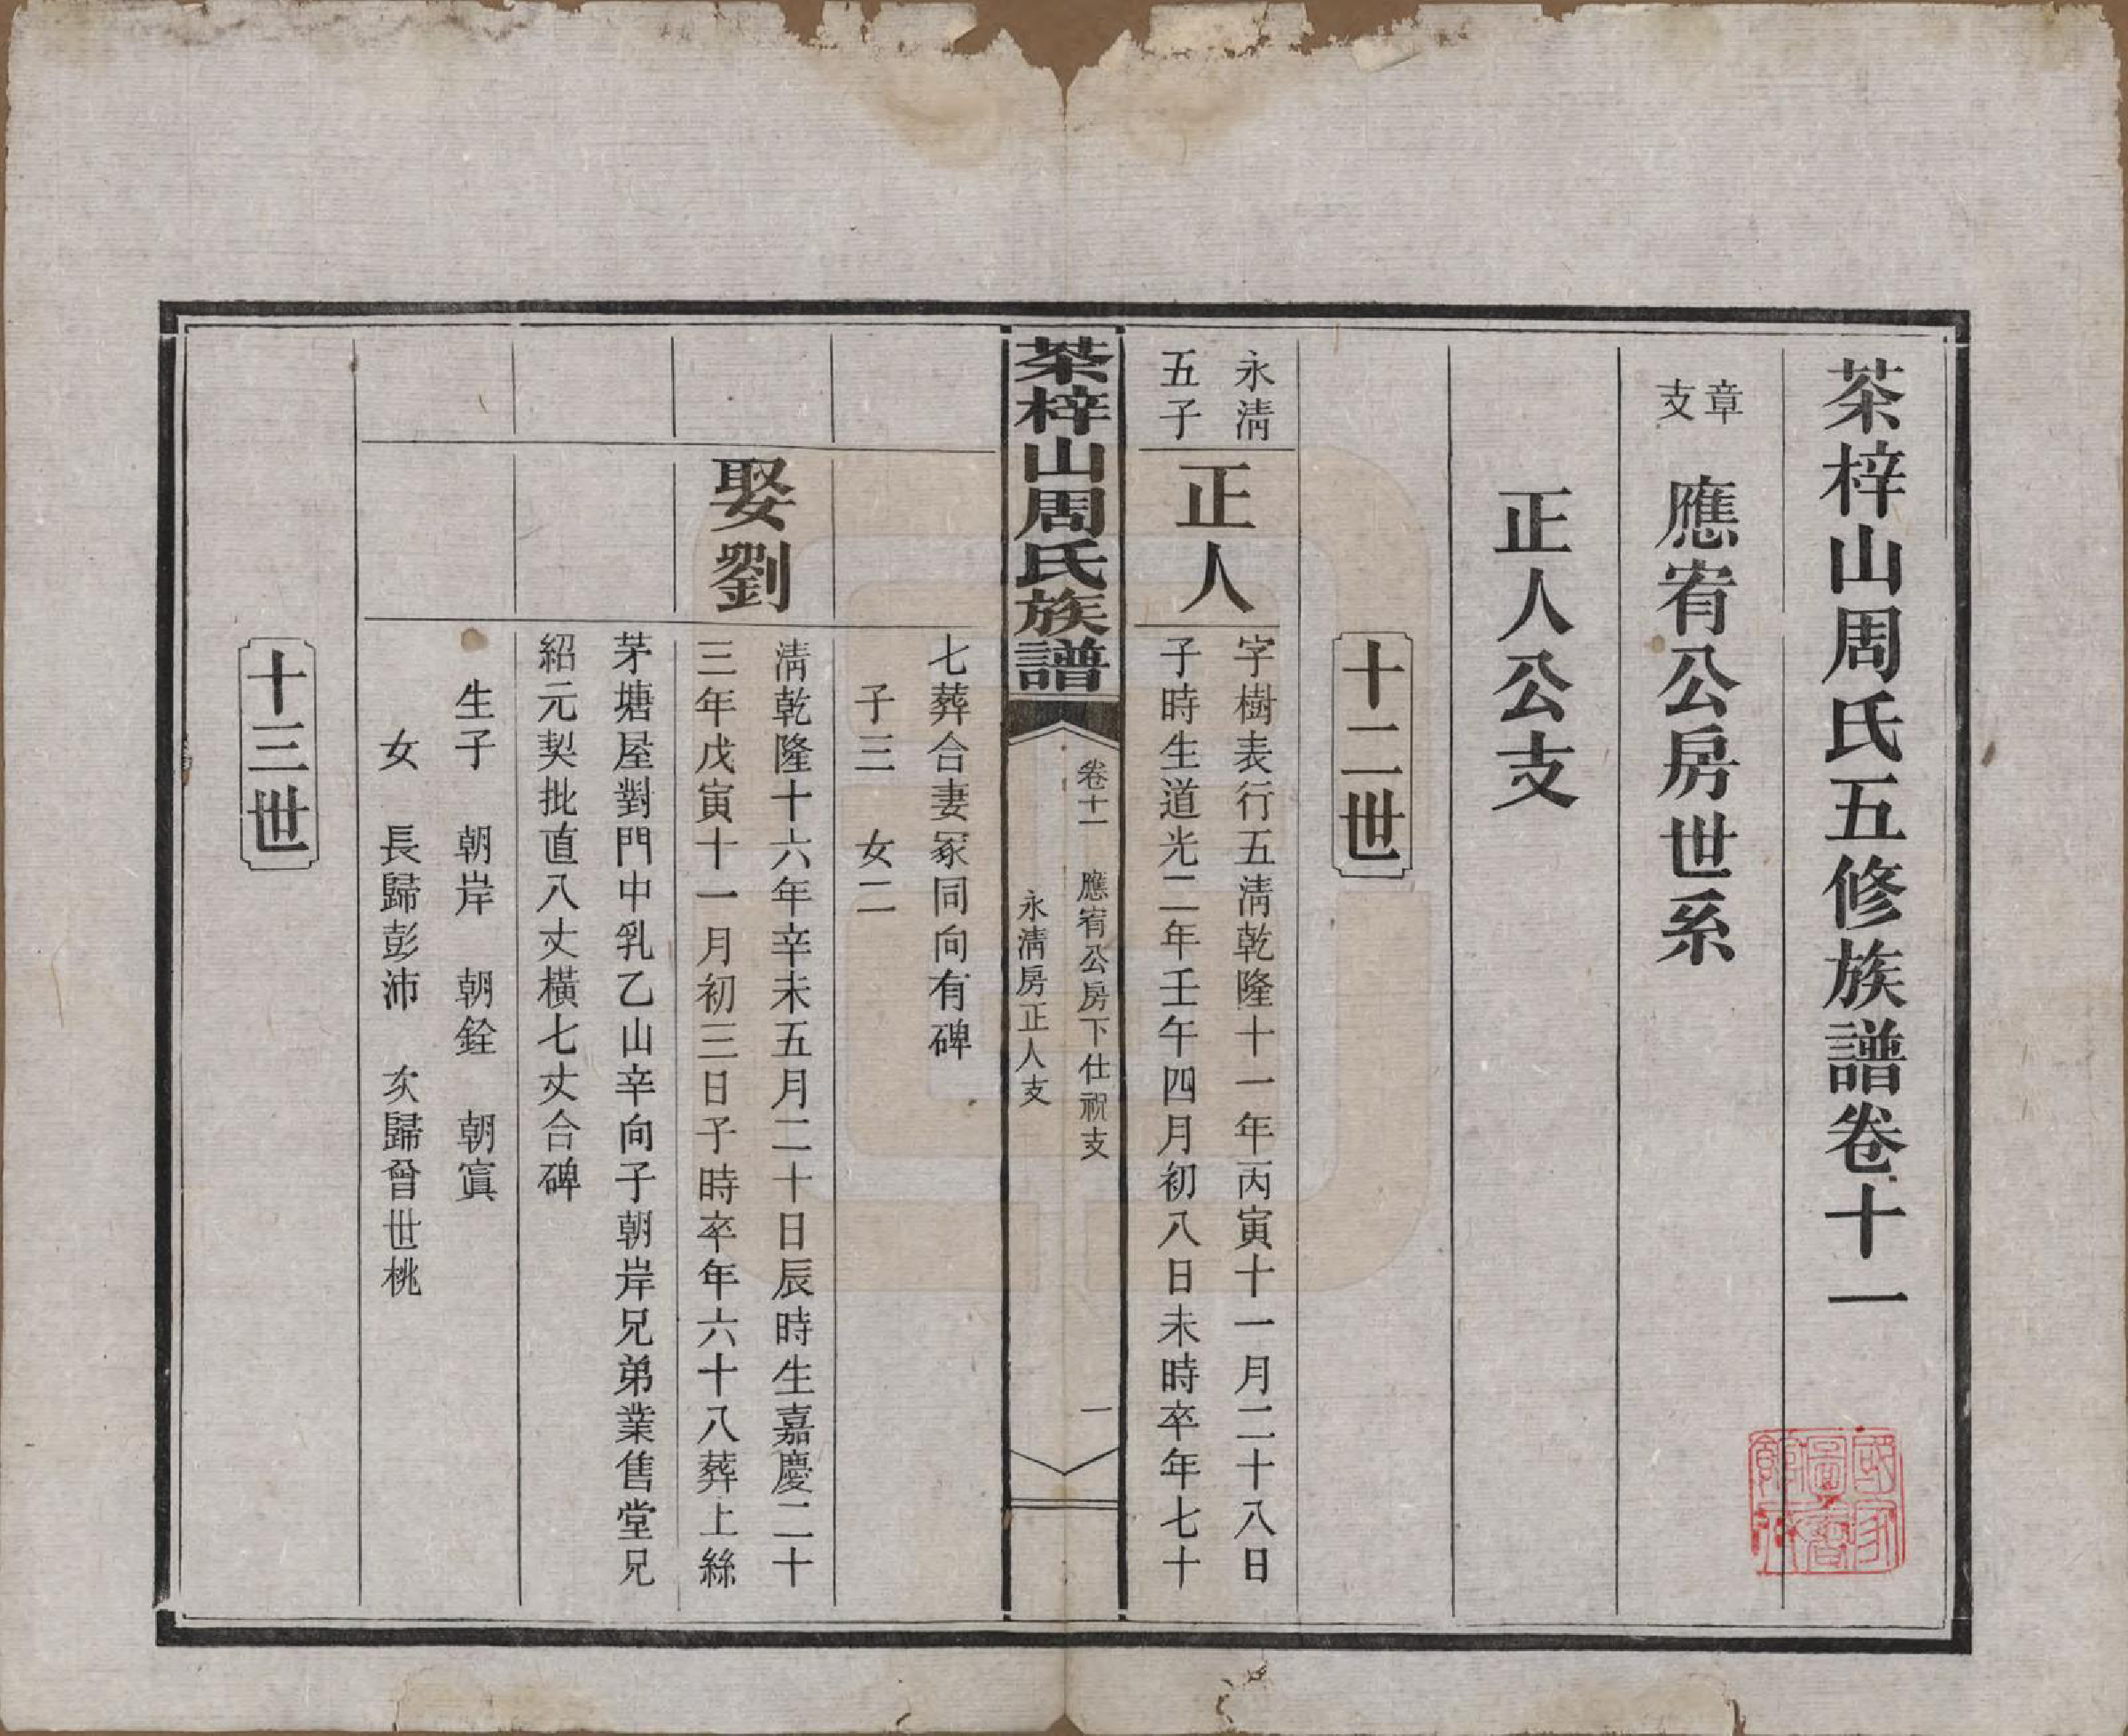 茶梓山周氏五修族譜卷十一
章支 應宥公房世系
正人公支
十二世
永清
五子
正人
字樹表行五清乾隆十一年丙寅十一月二十八日
子時生道光二年壬午四月初八日未時卒年七十
茶梓山周氏族譜
卷十一 應宥公房下仕祝支
永清房正人支
一
七葬合妻冢同向有碑
子三 女二
娶劉
清乾隆十六年辛未五月二十日辰時生嘉慶二十
三年戊寅十一月初三日子時卒年六十八葬上絲
茅塘屋對門中乳乙山辛向子朝岸兄弟業售堂兄
紹元契批直八丈橫七丈合碑
生子 朝岸 朝銓 朝寘
女 長歸彭沛 次歸曾世桃
十三世
國家
圖書
館藏